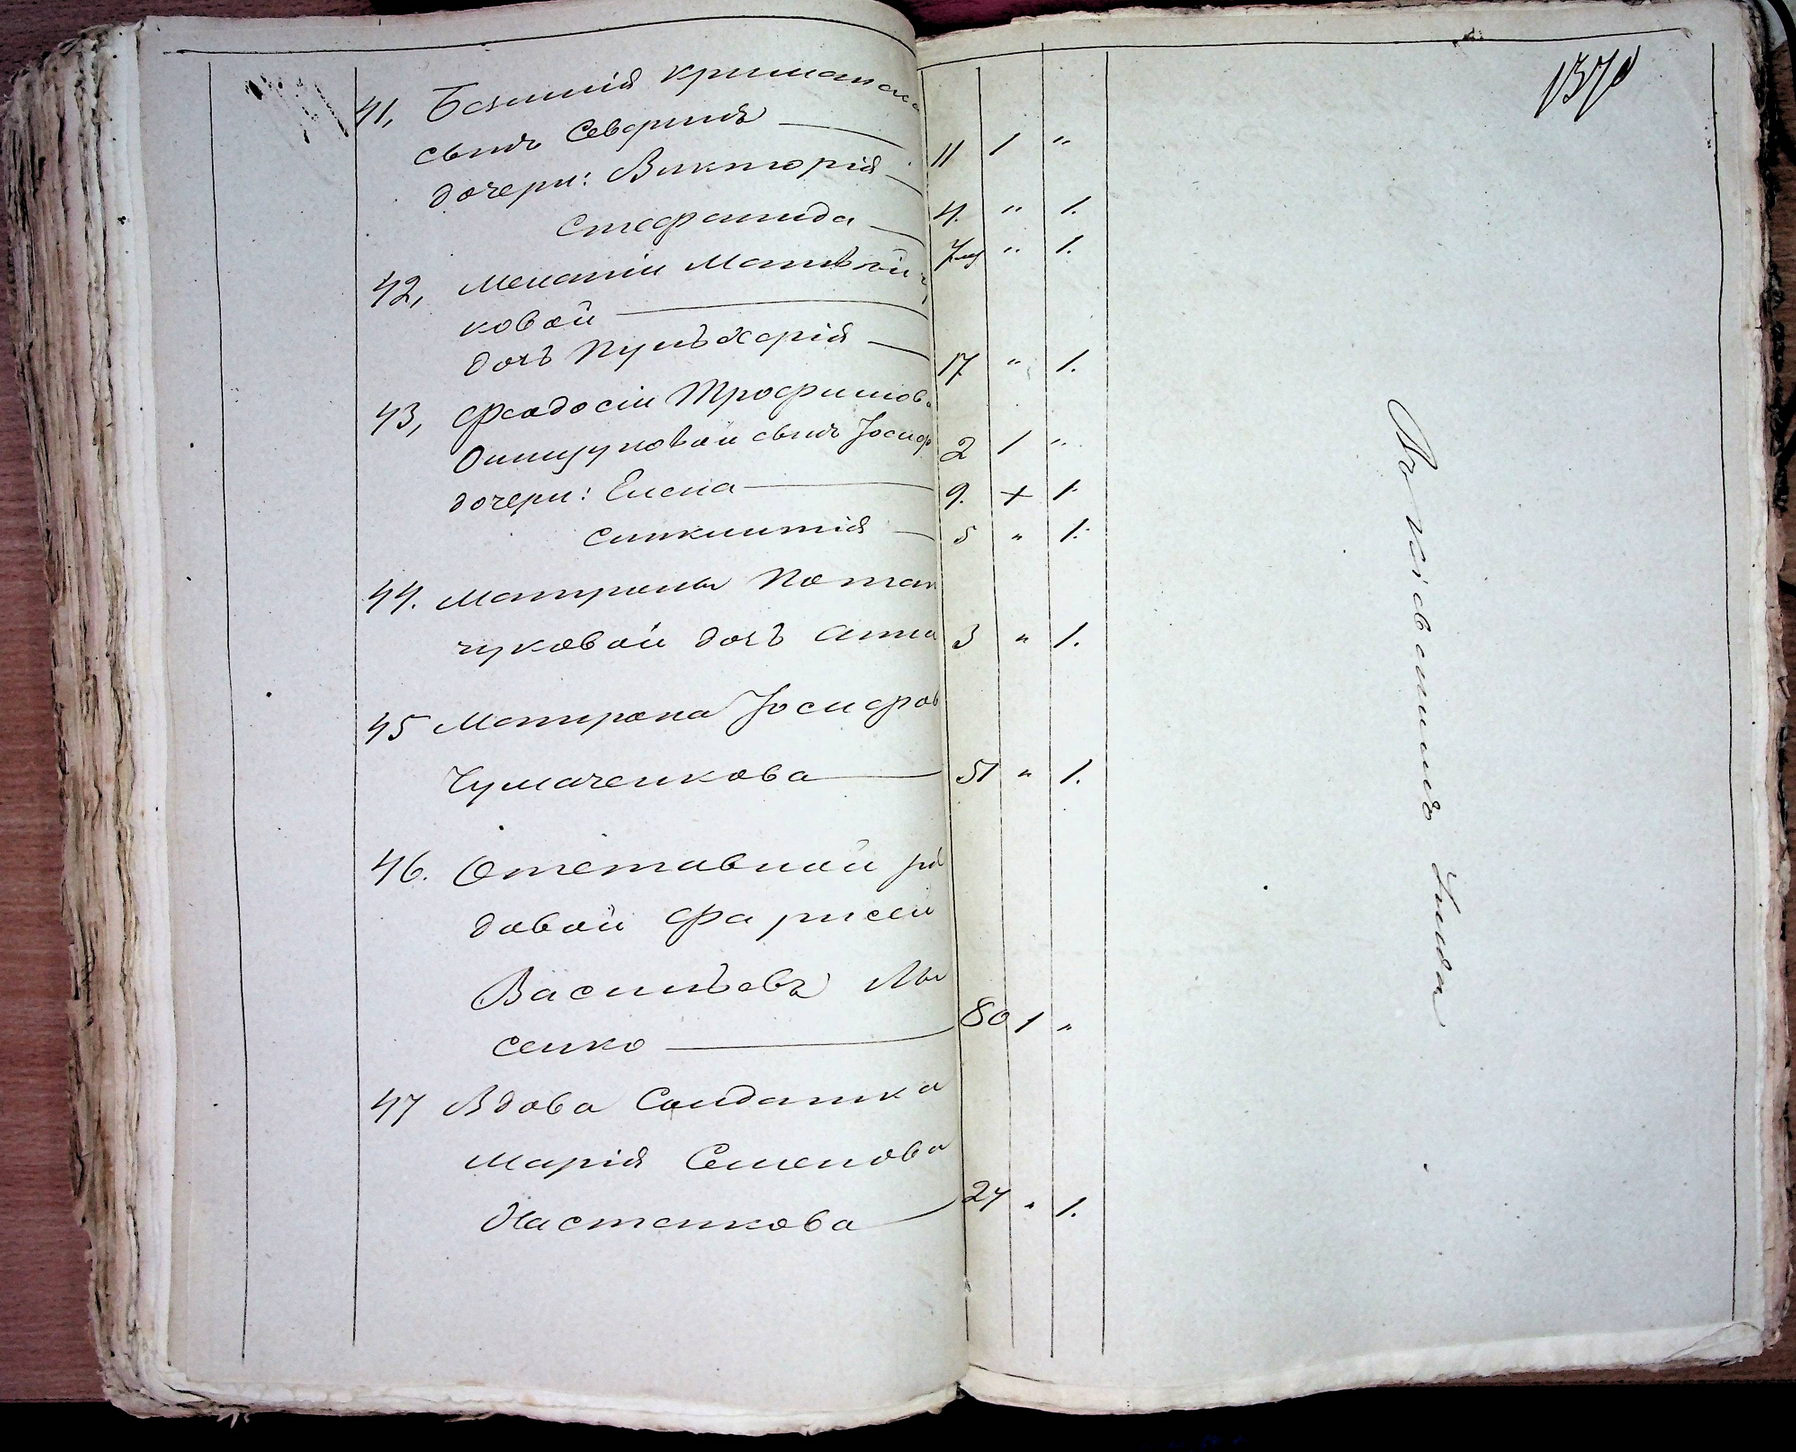 1370
41, Криманска
сынъ Северинъ — 11 1 "
дочери: Викторія — 4. " 1.
Стефанида — 7 м " 1.
42, Меланіи
ковой —
дочь Пульхерія — 17 " 1.
43, Феодосіи Трофимов
Онищуковой сынъ Іосиф 2 1 "
дочери: Елена — 9. + 1.
Синклитія — 5 " 1.
44. Матроны Потап
чуковой дочь Анна 3 " 1.
45 Матрона Іосифов
Чумаченкова — 51 " 1.
46. Отставной ря
довой
Васильевъ Лы
сенко — 80 1 "
47 Вдова Солдатка
Марія Семенова
Настенкова — 27 " 1.